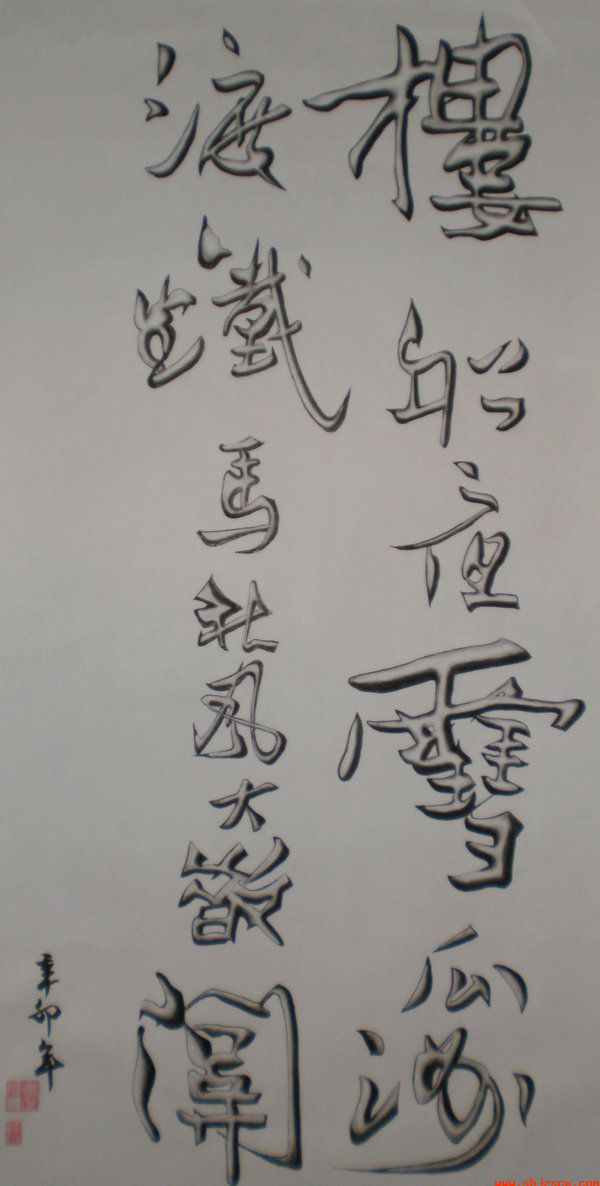 樓船夜雪瓜洲
渡鐵馬秋風大散關
辛卯年